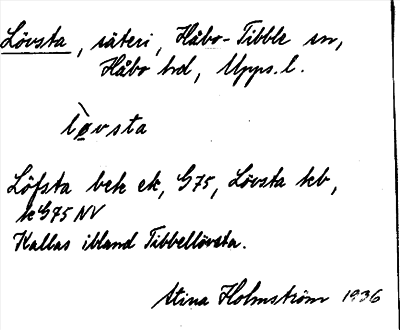 Lövsta, säteri, Håbo-Tibble sn,
Håbo hd, Upps. l.
lø̀vsta
Löfsta bek ek, G75, Lövsta kb,
kG75 NV
Kallas ibland Tibbellövsta.
Stina Holmström 1936